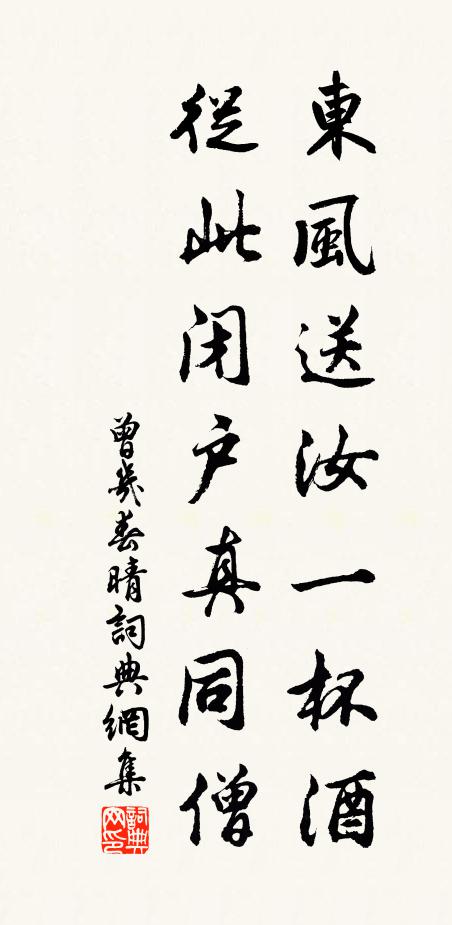 東風送汝一杯酒
從此閉户真同僧
曾幾春晴詞典網集
詞典网印